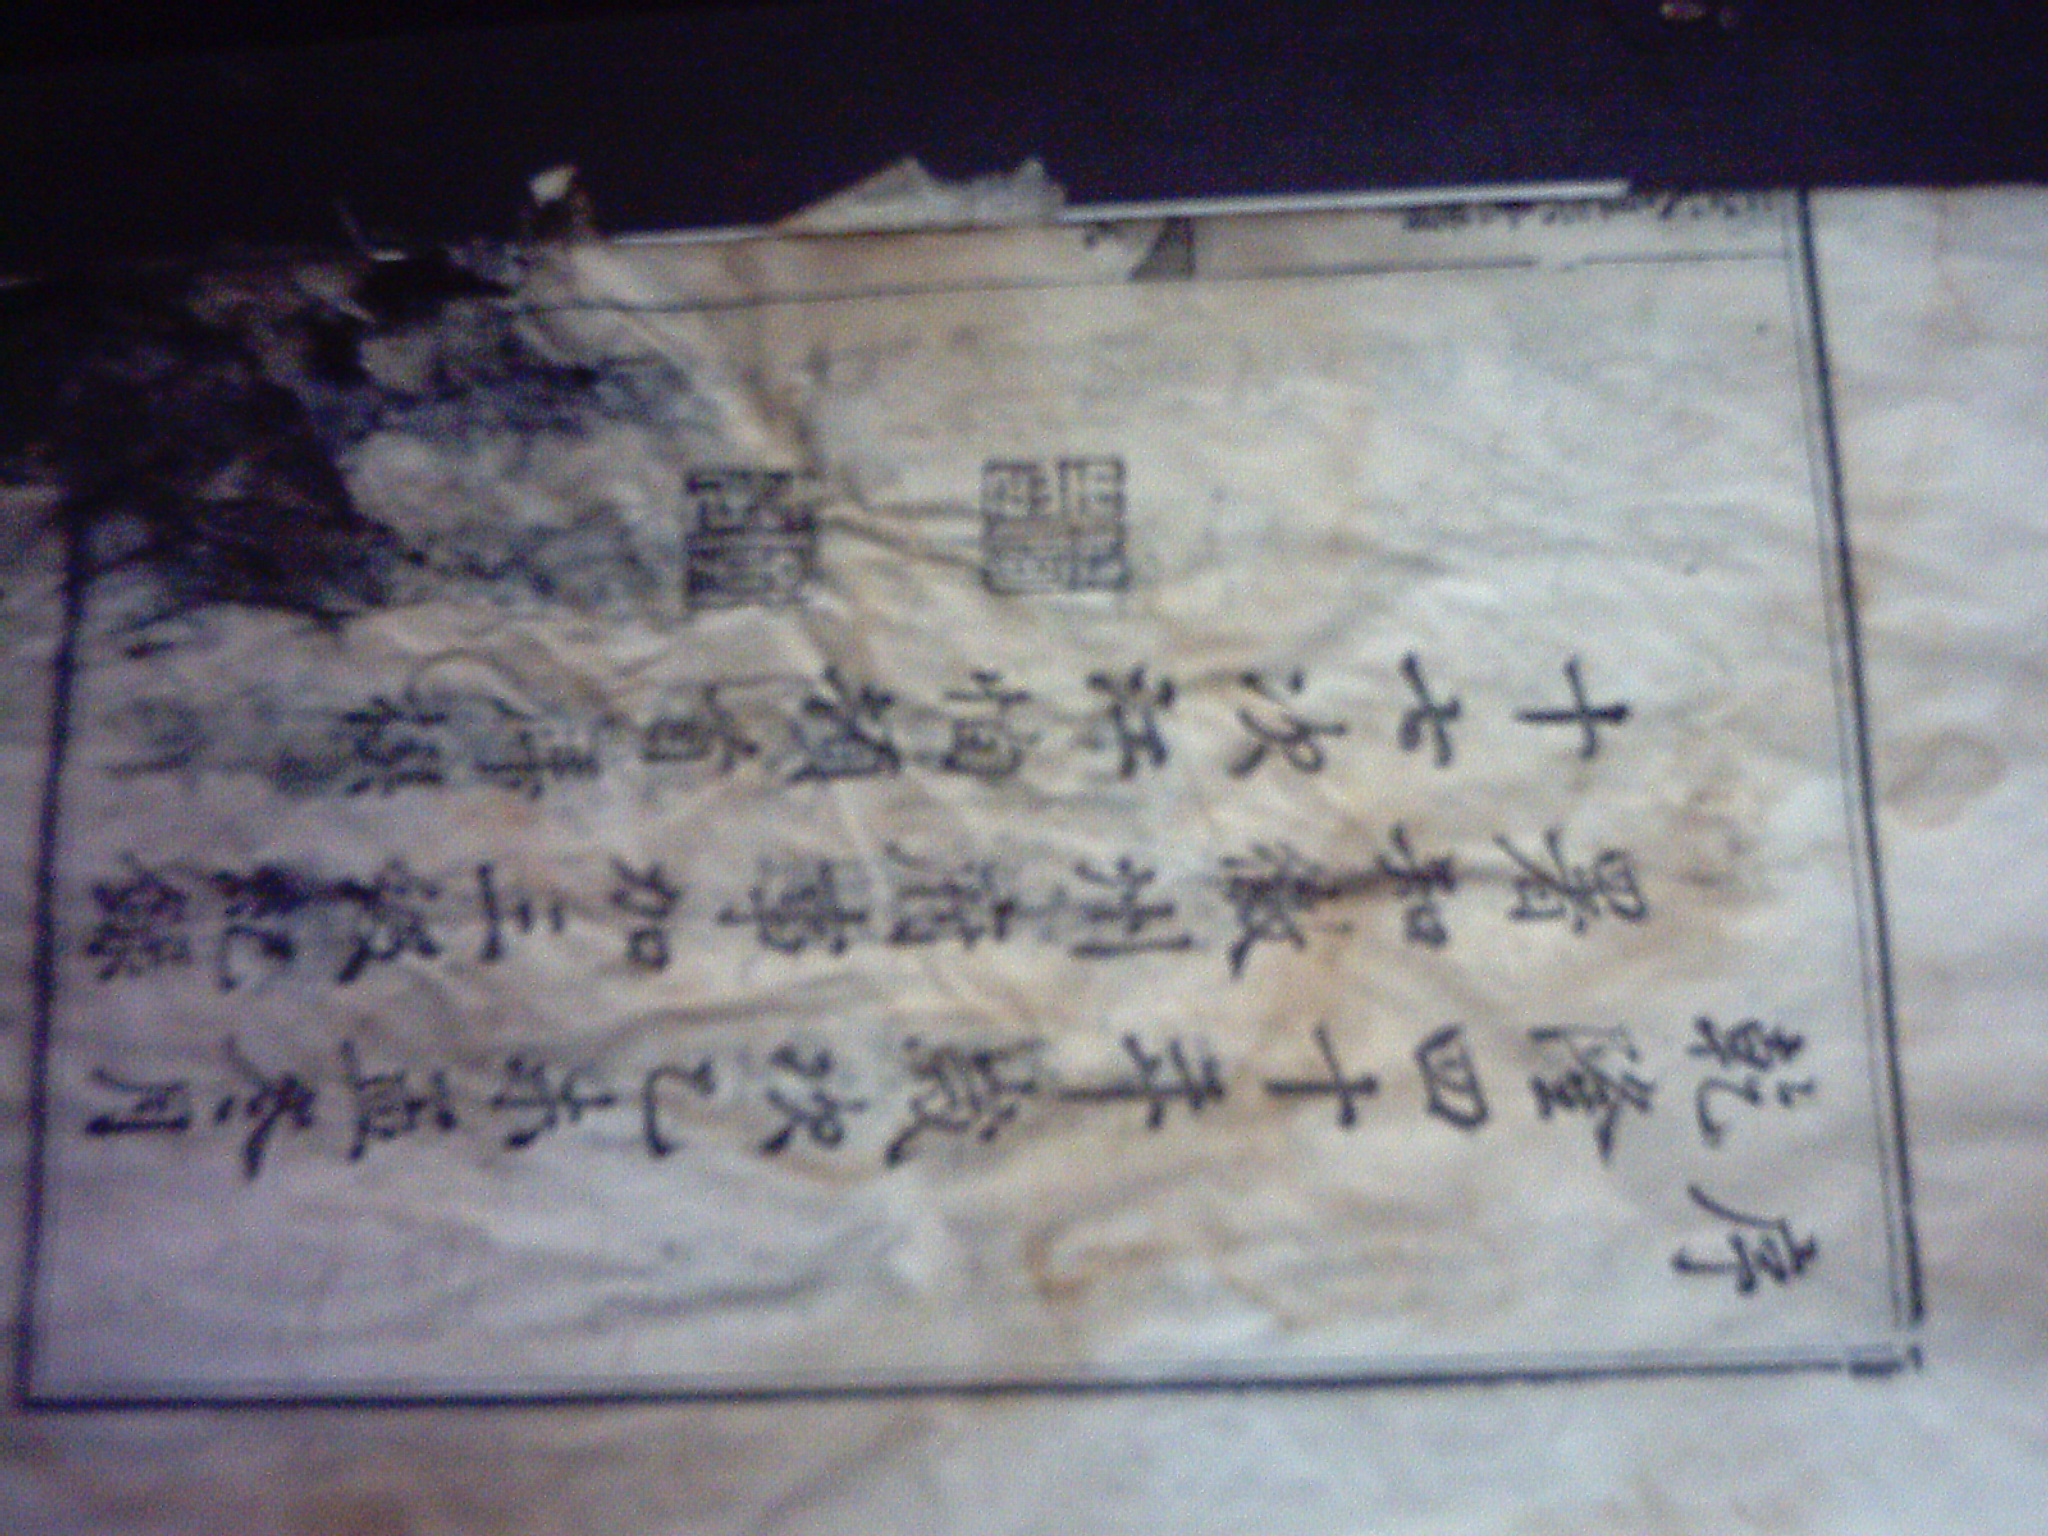 序
乾隆四十年歲次乙未孟冬月
署知徽州府事加三級紀錄
十七次江恂頓首拜撰